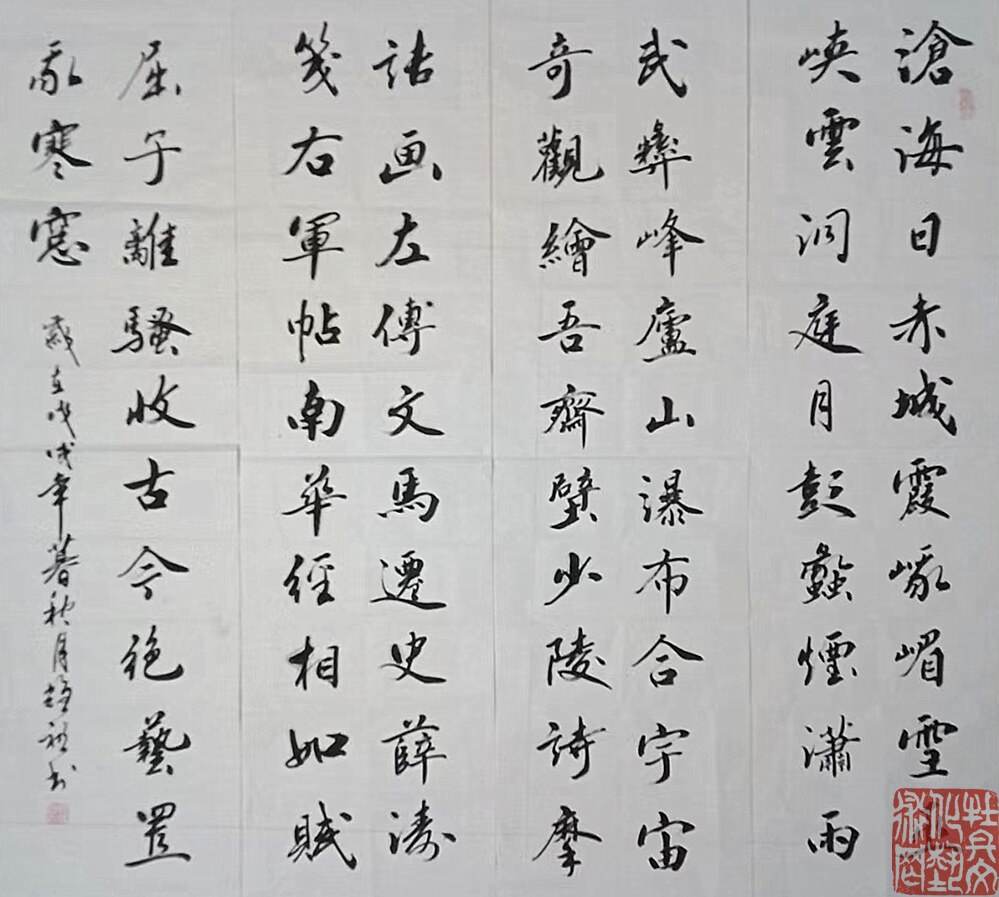 滄海日赤城霞峨嵋雪
峡雲洞庭月彭蠡煙瀟雨
武彝峰廬山瀑布合宇宙
奇觀繪吾齋壁少陵詩摩
詰画左傳文馬遷史薛濤
箋右軍帖南華經相如賦
屈子離騷收古今絶藝置
我寒窓
歲在戊戌年暮秋月书